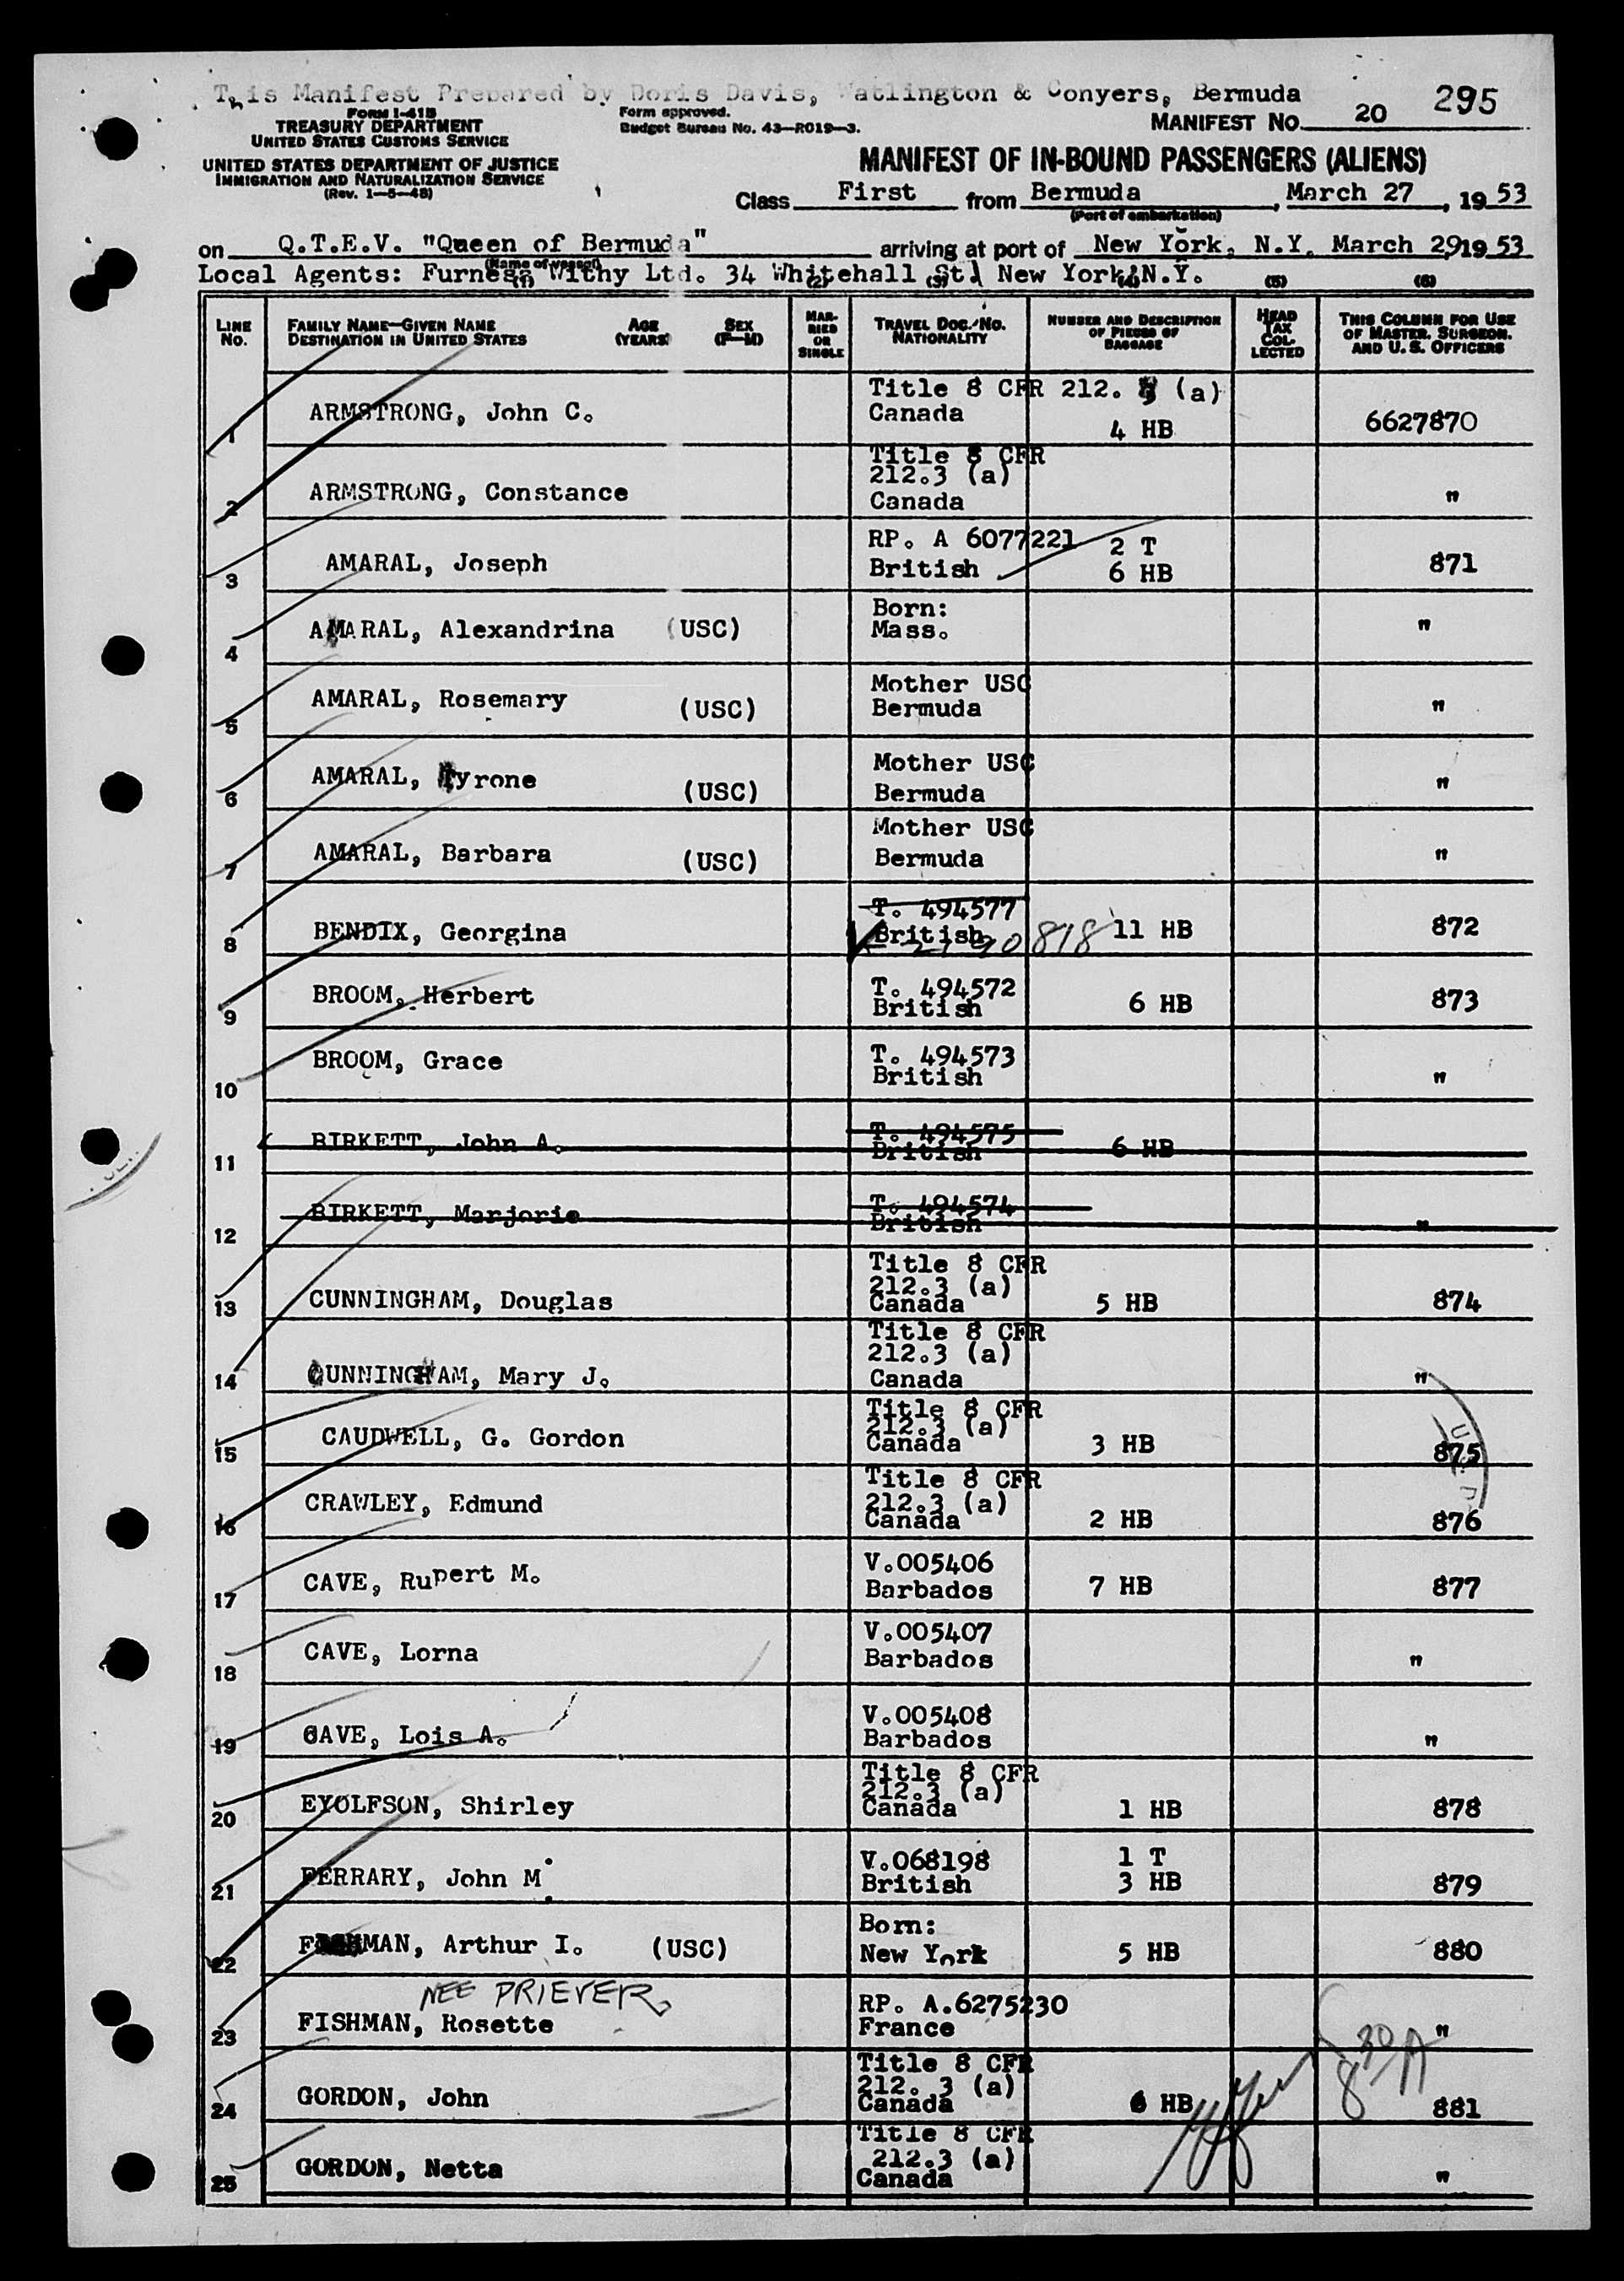 This Manifest Prepared by Doris Davis, Watlington & Conyers, Bermuda
295
FORM I-415
TREASURY DEPARTMENT
UNITED STATES CUSTOMS SERVICE
Form approved.
Budget Bureau No. 43-R019-3.
MANIFEST NO. 20
UNITED STATES DEPARTMENT OF JUSTICE
IMMIGRATION AND NATURALIZATION SERVICE
(Rev. 1-5-48)
MANIFEST OF IN-BOUND PASSENGERS (ALIENS)
Class First from Bermuda, March 27, 1953
(Port of embarkation)
on Q.T.E.V. "Queen of Bermuda" arriving at port of New York, N.Y. March 29 1953
(Name of vessel)
Local Agents: Furness Withy Ltd. 34 Whitehall St. New York N.Y.
(1) (2) (3) (4) (5) (6)
LINE No. FAMILY NAME—GIVEN NAME DESTINATION IN UNITED STATES AGE (YEARS) SEX (F-M) MARRIED OR SINGLE TRAVEL DOC. No. NATIONALITY NUMBER AND DESCRIPTION OF PIECES OF BAGGAGE HEAD TAX COLLECTED THIS COLUMN FOR USE OF MASTER, SURGEON, AND U. S. OFFICERS
1 ARMSTRONG, John C. Title 8 CFR 212. 3 (a) Canada 4 HB 6627870
2 ARMSTRONG, Constance Title 8 CFR 212.3 (a) Canada "
3 AMARAL, Joseph RP. A 6077221 British 2 T 6 HB 871
4 AMARAL, Alexandrina (USC) Born: Mass. "
5 AMARAL, Rosemary (USC) Mother USC Bermuda "
6 AMARAL, Tyrone (USC) Mother USC Bermuda "
7 AMARAL, Barbara (USC) Mother USC Bermuda "
8 BENDIX, Georgina T. 494577 British 11 HB 872
9 BROOM, Herbert T. 494572 British 6 HB 873
10 BROOM, Grace T. 494573 British "
11 BIRKETT, John A. T. 494575 British 6 HB
12 BIRKETT, Marjorie T. 494574 British "
13 CUNNINGHAM, Douglas Title 8 CFR 212.3 (a) Canada 5 HB 874
14 CUNNINGHAM, Mary J. Title 8 CFR 212.3 (a) Canada "
15 CAUDWELL, G. Gordon Title 8 CFR 212.3 (a) Canada 3 HB 875
16 CRAWLEY, Edmund Title 8 CFR 212.3 (a) Canada 2 HB 876
17 CAVE, Rupert M. V.005406 Barbados 7 HB 877
18 CAVE, Lorna V.005407 Barbados "
19 CAVE, Lois A. V.005408 Barbados "
20 EYOLFSON, Shirley Title 8 CFR 212.3 (a) Canada 1 HB 878
21 FERRARY, John M. V.068198 British 1 T 3 HB 879
22 FISHMAN, Arthur I. (USC) Born: New York 5 HB 880
NEE PRIEVER
23 FISHMAN, Rosette RP. A.6275230 France "
8 30/A
24 GORDON, John Title 8 CFR 212. 3 (a) Canada 6 HB 881
25 GORDON, Netta Title 8 CFR 212.3 (a) Canada "